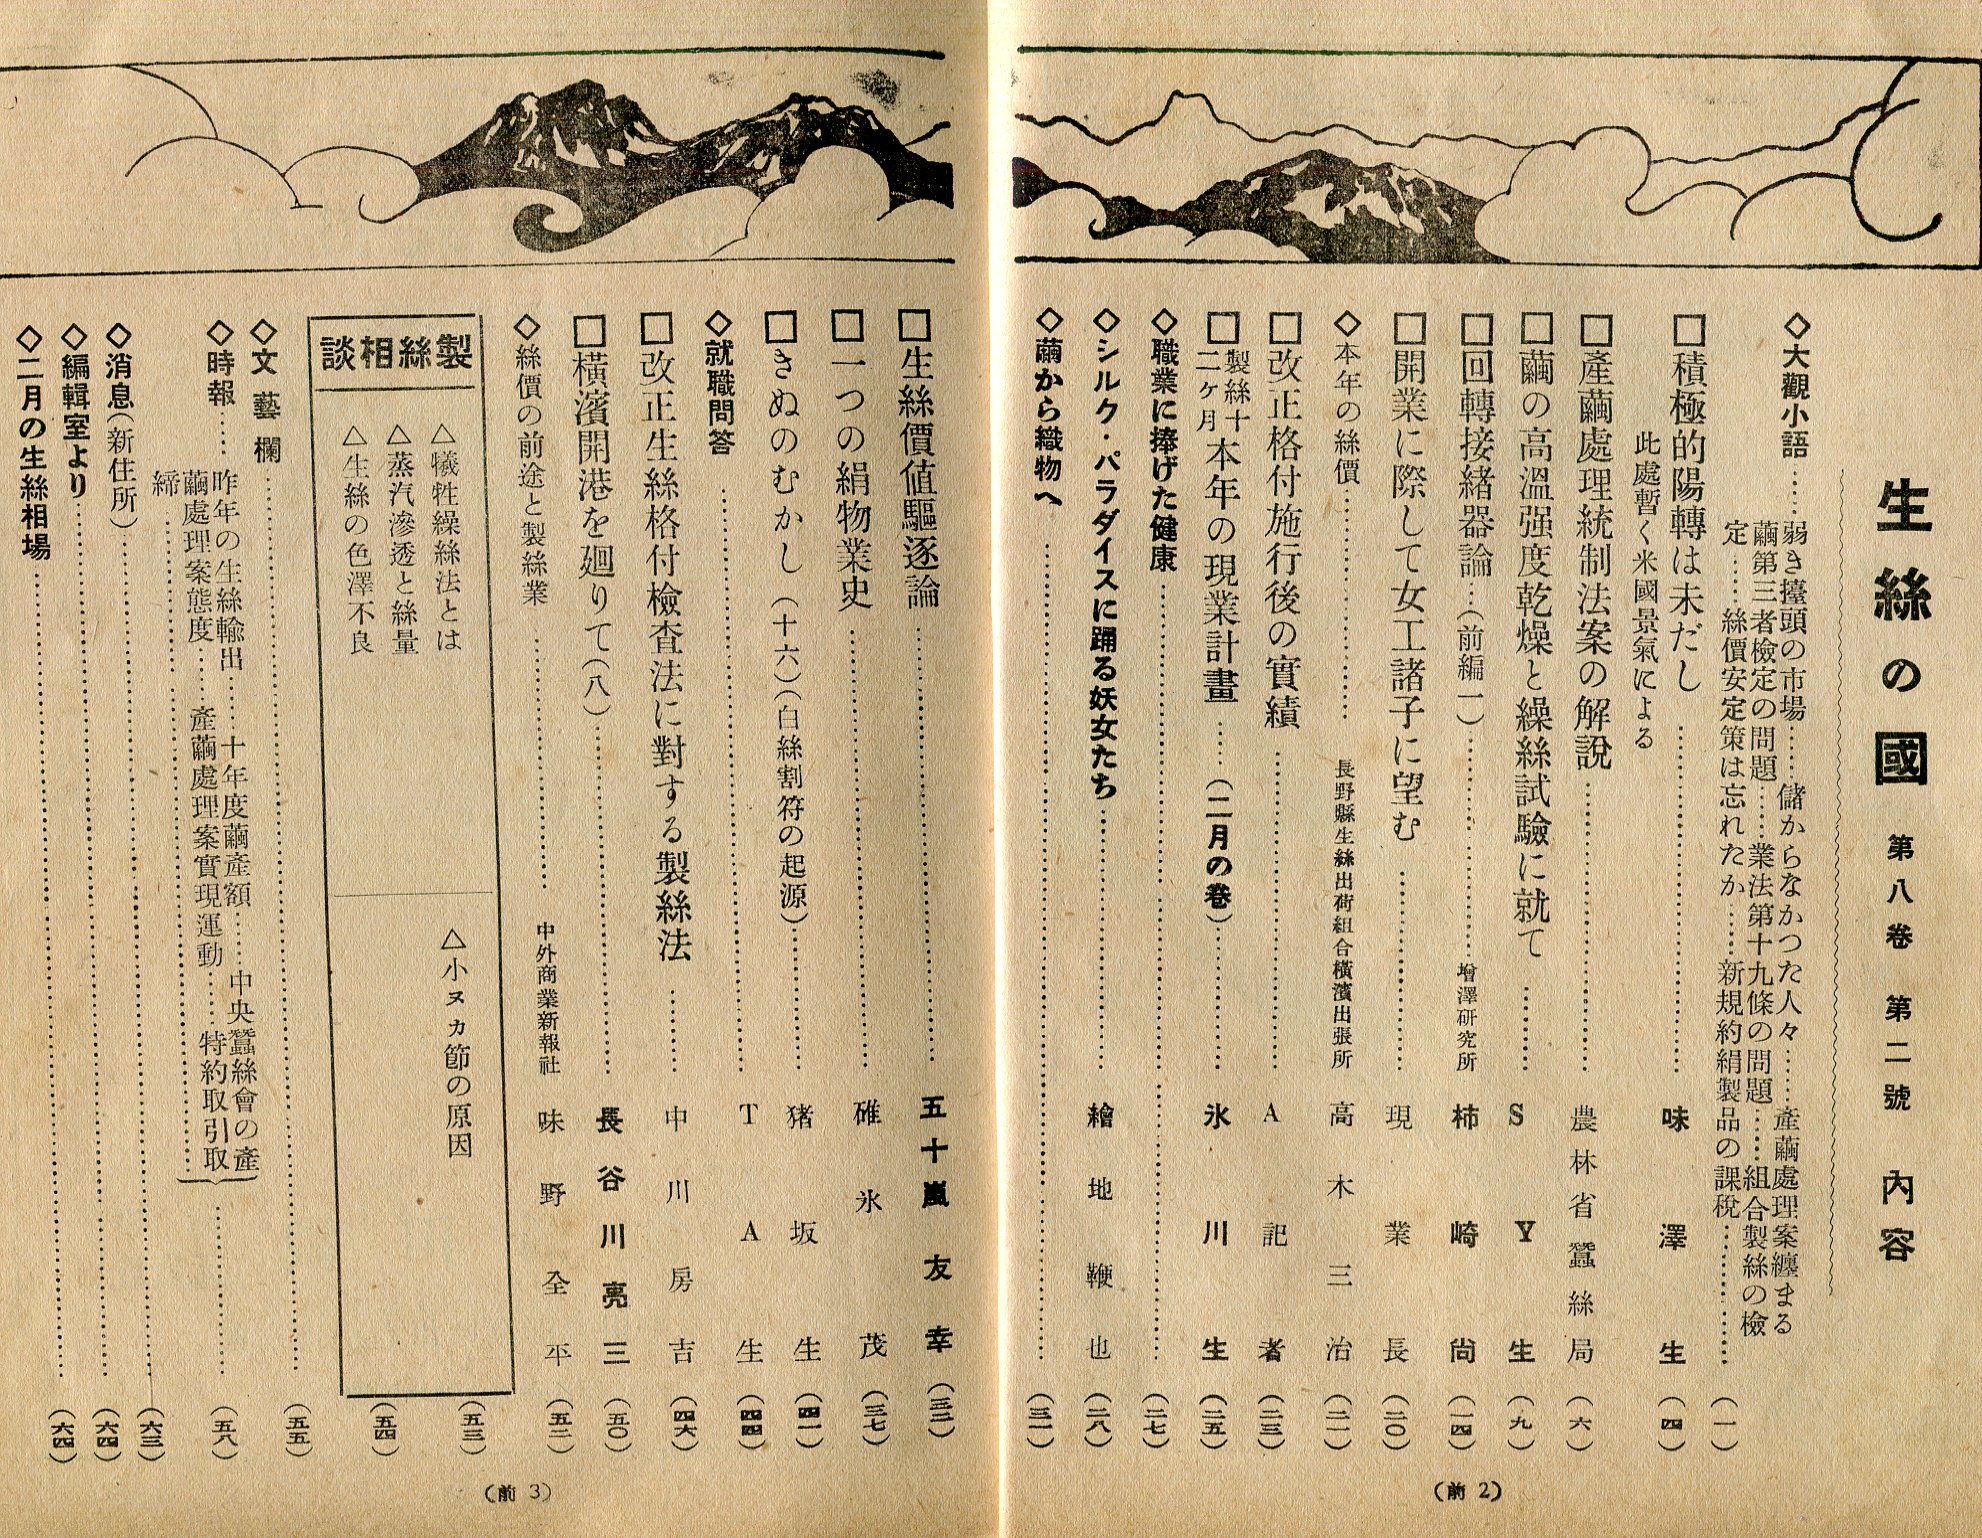 生絲の國 第八卷 第二號 內容
◇大觀小語……弱き擡頭の市場……儲からなかつた人々……產繭處理案纏まる
繭第三者檢定の問題……業法第十九條の問題……組合製絲の檢
定……絲價安定策は忘れたか……新規約絹製品の課稅…………(一)
□積極的陽轉は未だし…………味澤生(四)
此處暫く米國景氣による
□產繭處理統制法案の解說…………農林省蠶絲局(六)
□繭の高溫强度乾燥と繰絲試驗に就て…………SY生(九)
□回轉接緒器論…(前編一)…………增澤硏究所 柿崎尙(一四)
□開業に際して女工諸子に望む…………現業長(二〇)
◇本年の絲價…………長野縣生絲出荷組合橫濱出張所 高木三治(二一)
□改正格付施行後の實績…………A記者(二三)
□製絲十二ケ月 本年の現業計畫……(二月の卷)…………氷川生(二五)
◇職業に捧げた健康…………(二七)
◇シルク・パラダイスに踊る妖女たち…………繪地鞭也(二八)
◇繭から織物へ…………(三一)
(前 2)
□生絲價値驅逐論…………五十嵐友幸(三二)
□一つの絹物業史…………碓氷茂(三七)
□きぬのむかし(十六)(白絲割符の起源)…………猪坂生(四一)
◇就職問答…………TA生(四四)
□改正生絲格付檢查法に對する製絲法…………中川房吉(四六)
□橫濱開港を廻りて(八)…………長谷川亮三(五〇)
◇絲價の前途と製絲業…………中外商業新報社 味野全平(五二)
製絲相談
△犧牲繰絲法とは
△小ヌカ節の原因(五三)
△蒸汽滲透と絲量
△生絲の色澤不良(五四)
◇文藝欄…………(五五)
◇時報……昨年の生絲輸出……十年度繭產額……中央蠶絲會の產
繭處理案態度……產繭處理案實現運動……特約取引取
締…………(五八)
◇消息(新住所)…………(六三)
◇編輯室より…………(六四)
◇二月の生絲相場…………(六四)
(前 3)